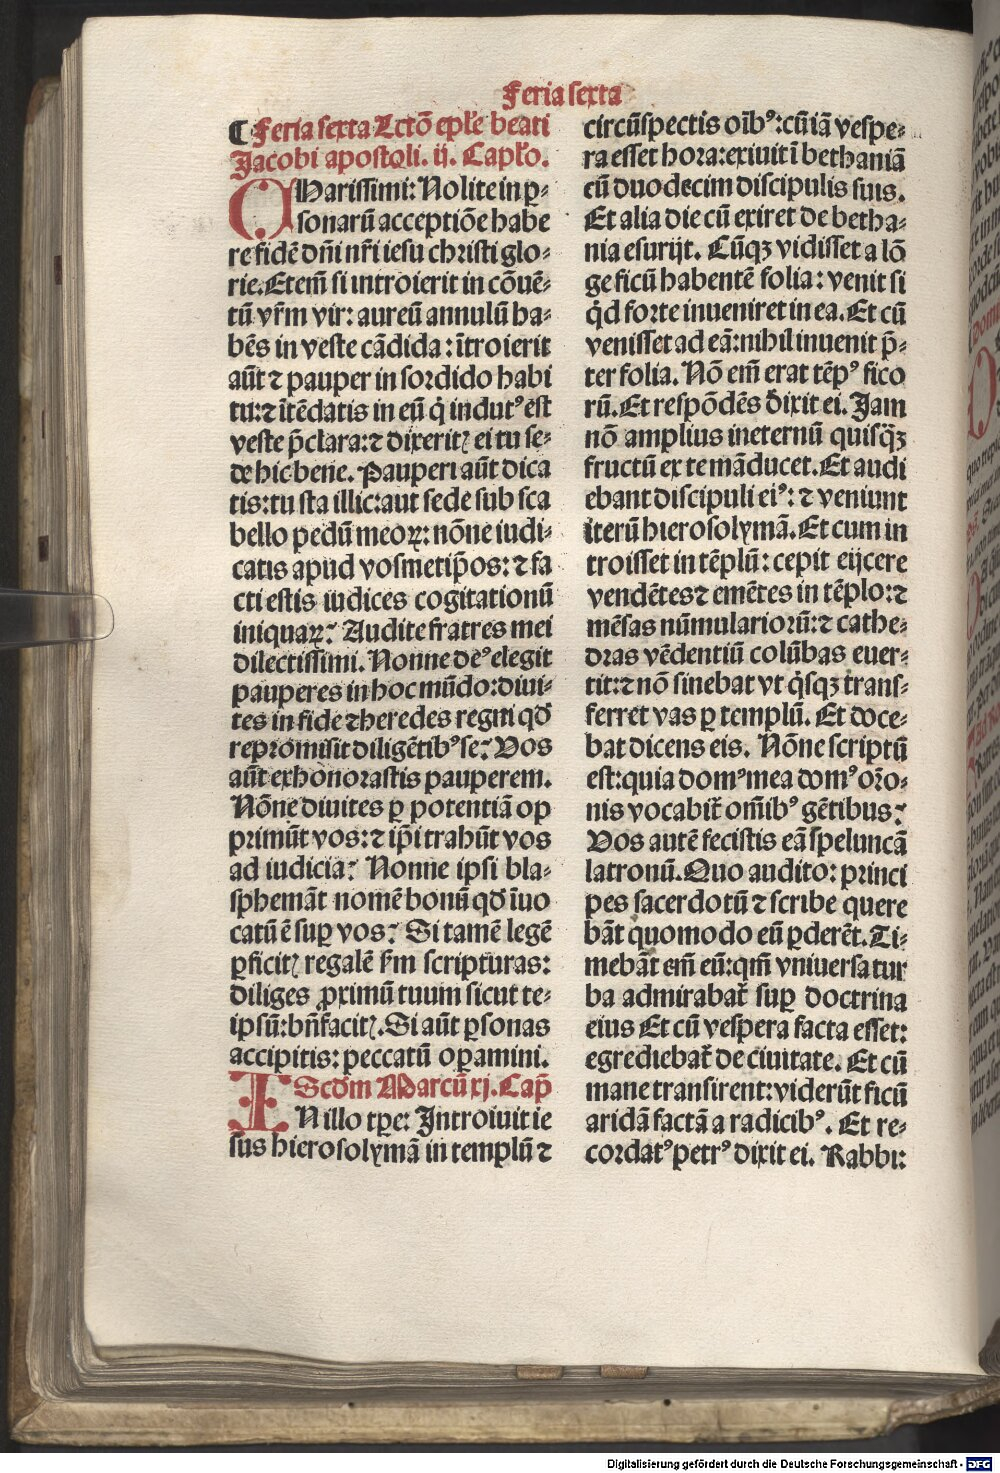 Feria sexta
¶ Feria sexta Lctõ epłe beati
Jacobi apostoli. ij. Capło.
CHarissimi: Nolite in ꝑ⸗
sonarũ acceptiõe habe
re fidẽ dñi nr̃i iesu christi glo⸗
rie. Etem̃ si introierit in cõuẽ⸗
tũ vr̃m vir: aureũ annulũ ha⸗
bẽs in veste cãdida: ĩtroierit
aũt ⁊ pauper in sordido habi
tu: ⁊ ĩtẽdatis in eũ q̇ indutꝰ est
veste p̃clara: ⁊ dixeritꝭ ei tu se⸗
de hic bene. Pauperi aũt dica
tis: tu sta illic: aut sede sub sca
bello pedũ meoꝝ: nõne iudi⸗
catis apud vosmetip̃os: ⁊ fa
cti estis iudices cogitationũ
iniquaꝝ? Audite fratres mei
dilectissimi. Nonne deꝰ elegit
pauperes in hoc mũdo: diui⸗
tes in fide ⁊ heredes regni qđ
repromisit diligẽtibꝰ se? Vos
aũt exhonorastis pauperem.
Nõne diuites ꝑ potentiã op
primũt vos: ⁊ ip̃i trahũt vos
ad iudicia? Nonne ipsi bla⸗
sphemãt nomẽ bonũ qđ ĩuo
catũ ẽ suꝑ vos? Si tamẽ legẽ
ꝑficitꝭ regalẽ ẜm scripturas:
diliges ꝓximũ tuum sicut te⸗
ipsũ: bñ facitꝭ. Si aũt ꝑsonas
accipitis: peccatũ oꝑamini.
Scd̃m Marcũ xj. Cap̃
IN illo tꝑe: Introiuit ie
sus hierosolymã in templũ ⁊
circũspectis oĩbꝰ: cũ iã vespe⸗
ra esset hora: exiuit ĩ bethaniã
cũ duodecim discipulis suis.
Et alia die cũ exiret de betha⸗
nia esurijt. Cũqꝫ vidisset a lõ
ge ficũ habentẽ folia: venit si
q̇d forte inueniret in ea. Et cũ
venisset ad eã: nihil inuenit p̃⸗
ter folia. Nõ em̃ erat tẽpꝰ fico
rũ. Et respõdẽs dixit ei. Jam
nõ amplius ineternũ quisq̃ꝫ
fructũ ex te mãducet. Et audi
ebant discipuli eiꝰ: ⁊ veniunt
iterũ hierosolymã. Et cum in
troisset in tẽplũ: cepit eijcere
vendẽtes ⁊ emẽtes in tẽplo: ⁊
mẽsas nũmulariorũ: ⁊ cathe⸗
dras vẽdentiũ colũbas euer⸗
tit: ⁊ nõ sinebat vt q̇sqꝫ trans⸗
ferret vas ꝑ templũ. Et doce⸗
bat dicens eis. Nõne scriptũ
est: quia domꝰ mea domꝰ or̃o⸗
nis vocabit̃ om̃ibꝰ gẽtibus?
Vos autẽ fecistis eã speluncã
latronũ. Quo audito: princi
pes sacerdotũ ⁊ scribe quere
bãt quomodo eũ ꝑderẽt. Ti⸗
mebãt em̃ eũ: qm̃ vniuersa tur
ba admirabat̃ suꝑ doctrina
eius Et cũ vespera facta esset:
egrediebat̃ de ciuitate. Et cũ
mane transirent: viderũt ficũ
aridã factã a radicibꝰ. Et re⸗
cordatꝰ petrꝰ dixit ei. Rabbi:
Digitalisierung gefördert durch die Deutsche Forschungsgemeinschaft - DFG